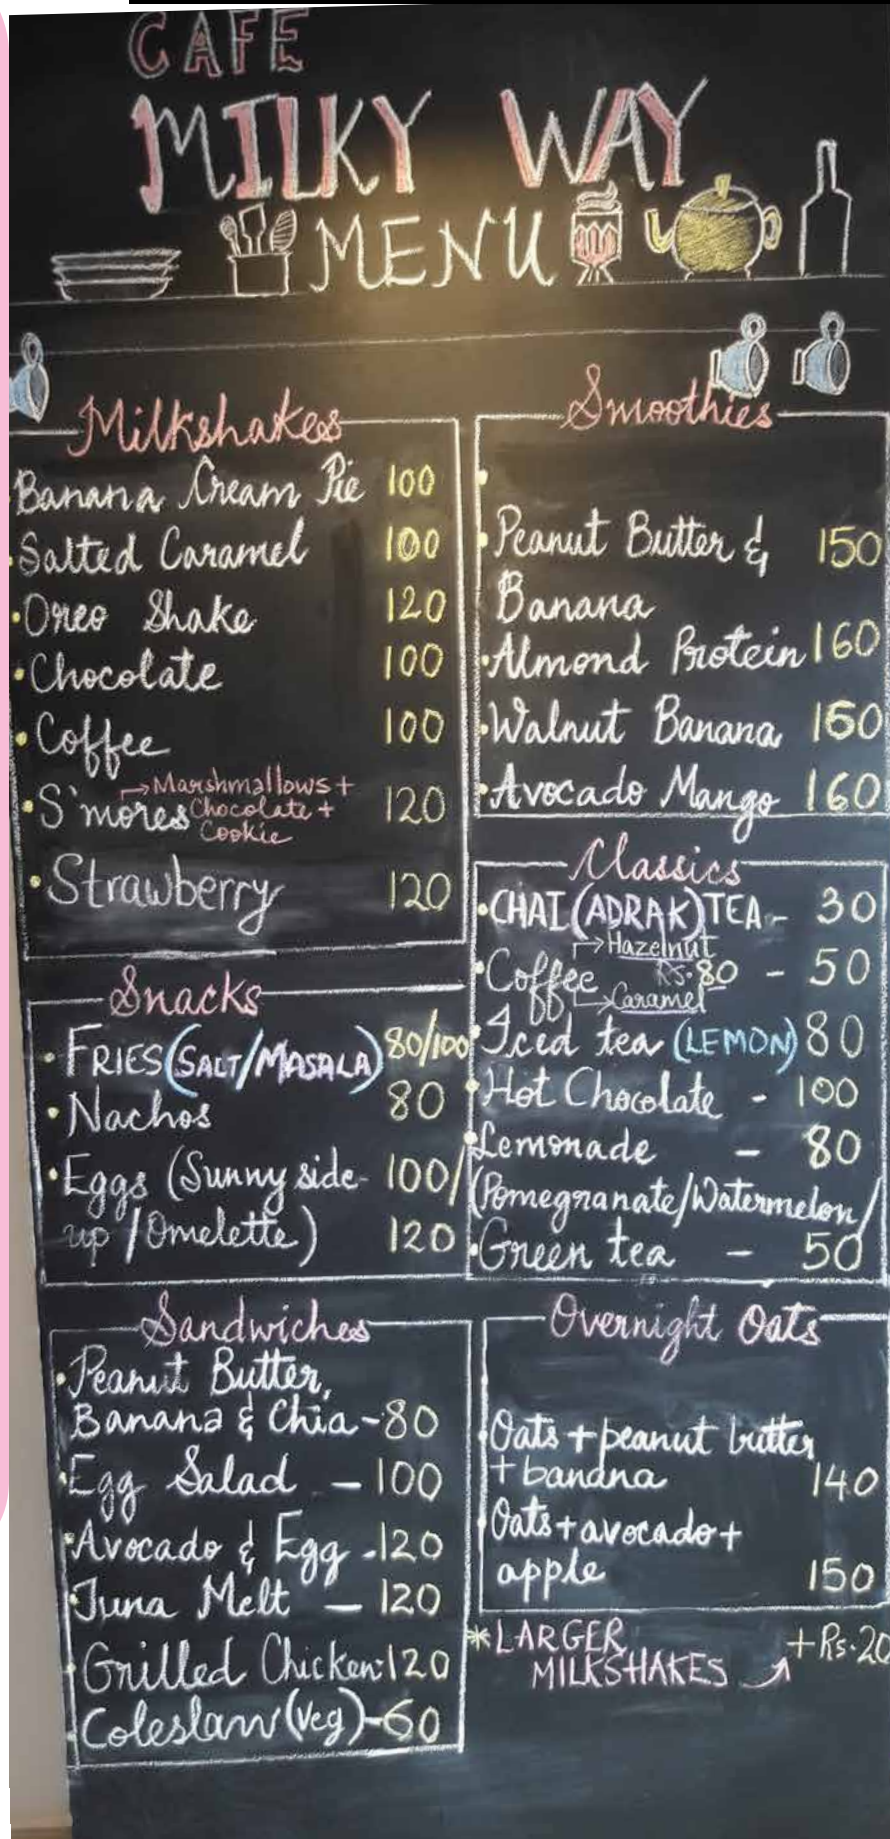 CAFE
MILKY WAY
MENU
Milkshakes
Banana Cream Pie 100
•Salted Caramel 100
•Oreo Shake 120
•Chocolate 100
•Coffee 100
•S'mores →Marshmallows + 120
Chocolate +
Cookie
•Strawberry 120
Snacks
•FRIES (SALT/MASALA) 80/100
•Nachos 80
•Eggs (Sunny side- 100/
up / Omelette) 120
Sandwiches
•Peanut Butter,
Banana & Chia-80
•Egg Salad - 100
•Avocado & Egg -120
•Tuna Melt - 120
•Grilled Chicken-120
•Coleslaw (Veg)-60
Smoothies
•Peanut Butter & 150
Banana
•Almond Protein 160
•Walnut Banana 160
•Avocado Mango 160
Classics
•CHAI (ADRAK) TEA - 30
→Hazelnut
•Coffee Rs.80 - 50
→Caramel
•Iced tea (LEMON) 80
•Hot Chocolate - 100
•Lemonade - 80
(Pomegranate/Watermelon/
•Green tea - 50
Overnight Oats
•Oats + peanut butter
+ banana 140
•Oats + avocado +
apple 150
*LARGER
MILKSHAKES → + Rs.20